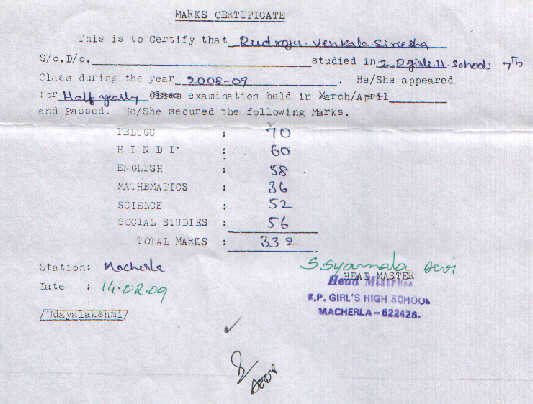 MARKS CERTIFICATE
This is to Certify that Rudroju Venkata Sireesha
S/o.D/o. studied in Z.P.girls H.School; 7th
Class during the year 2008-09 . He/She appeared
for Half yearly examination held in March/April
and Passed. He/She secured the following Marks.
TELUGU : 70
HINDI : 60
ENGLISH : 58
MATHEMATICS : 36
SCIENCE : 52
SOCIAL STUDIES : 56
TOTAL MARKS : 332
Station: Macherla S.Syamala Devi
HEAD MASTER
Date : 14.02.09 Head Mistress
Z.P. GIRL'S HIGH SCHOOL
/Udayalakshmi/ MACHERLA-522426.